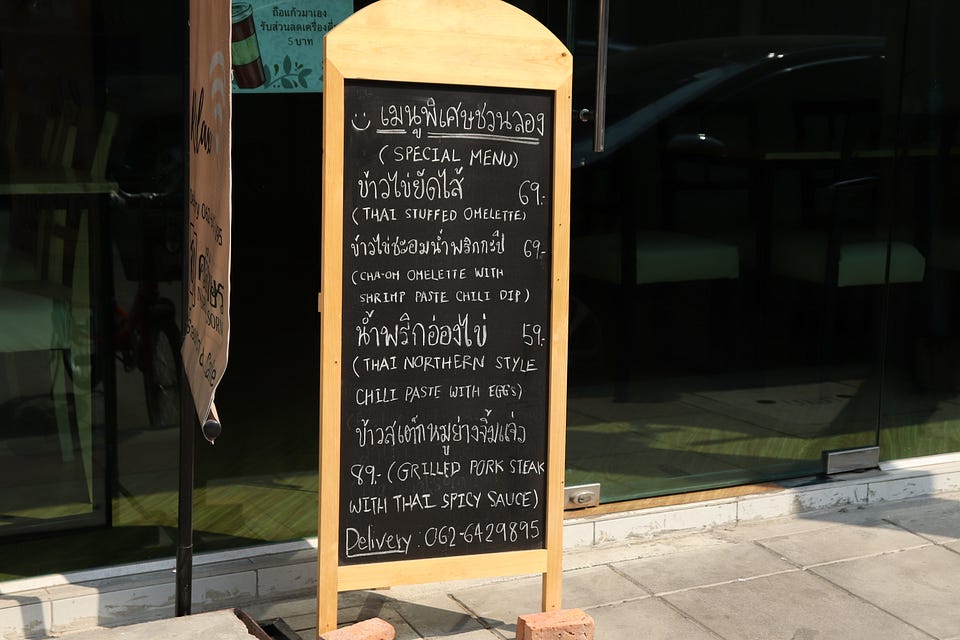 ถือแก้วมาเอง
รับส่วนลดเครื่องดื่ม
5 บาท
เมนูพิเศษชวนลอง
(SPECIAL MENU)
ข้าวไข่ยัดไส้ 69.-
(THAI STUFFED OMELETTE)
ข้าวไข่ชะอมน้ำพริกกะปิ 69.-
(CHA-OM OMELETTE WITH
SHRIMP PASTE CHILI DIP)
น้ำพริกอ่องไข่ 59.-
(THAI NORTHERN STYLE
CHILI PASTE WITH EGGS)
ข้าวสเต๊กหมูย่างจิ้มแจ่ว
89.- (GRILLED PORK STEAK
WITH THAI SPICY SAUCE)
Delivery : 062-6429895